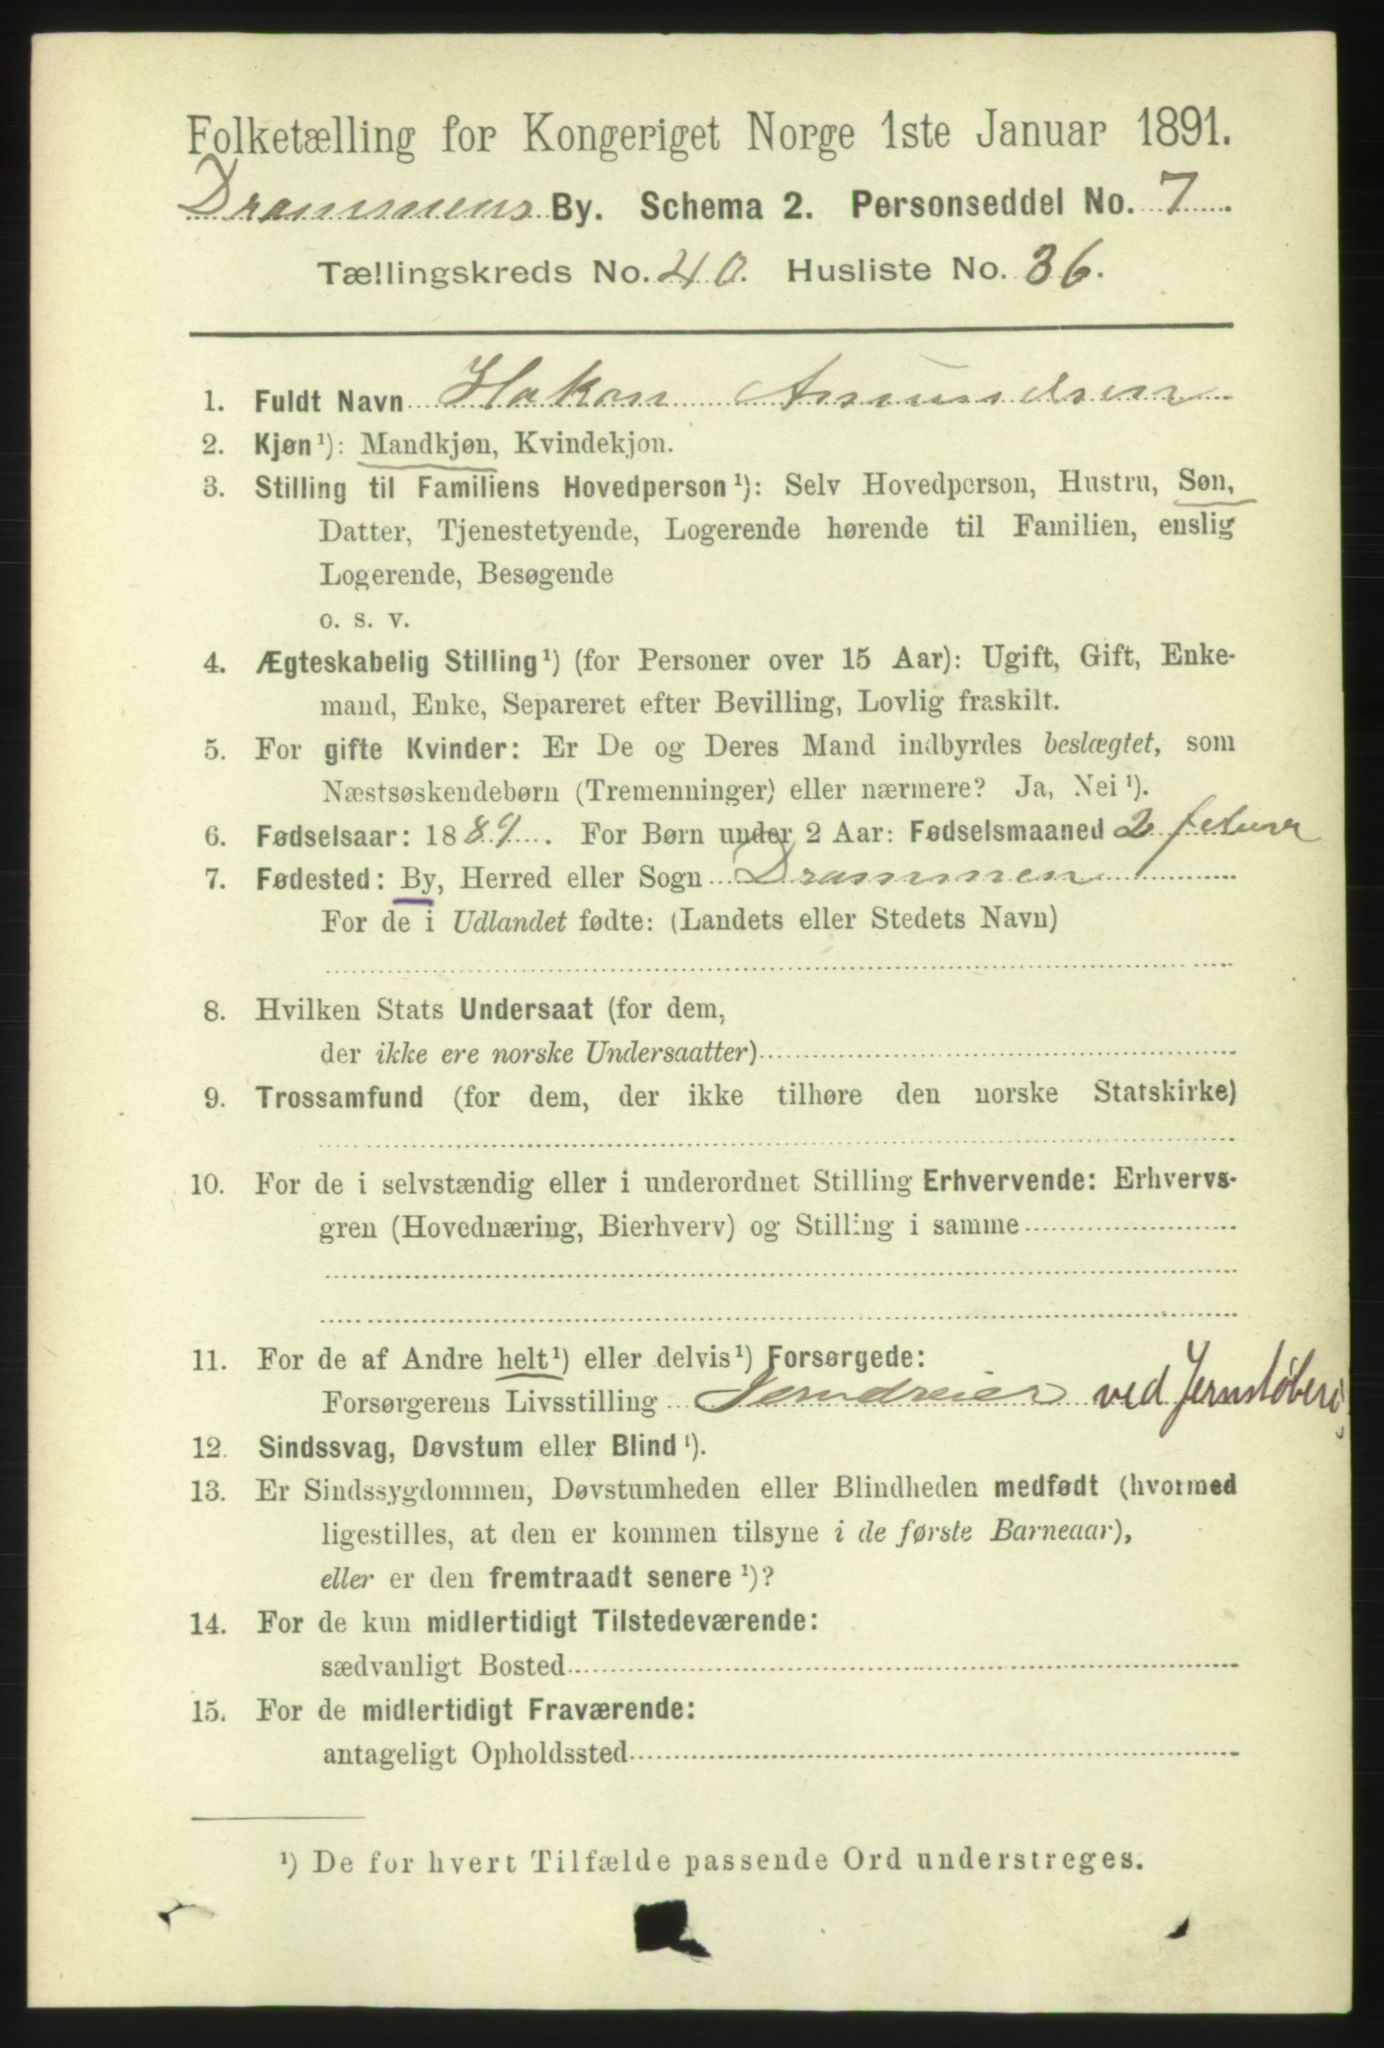 Folketælling for Kongeriget Norge 1ste Januar 1891.
Drammens By. Schema 2. Personseddel No. 7.
Tællingskreds No. 40. Husliste No. 36.
1. Fuldt Navn Hakon Amundsen
2. Kjøn¹): Mandkjøn, Kvindekjøn.
3. Stilling til Familiens Hovedperson¹): Selv Hovedperson, Hustru, Søn,
Datter, Tjenestetyende, Logerende hørende til Familien, enslig
Logerende, Besøgende
o. s. v.
4. Ægteskabelig Stilling¹) (for Personer over 15 Aar): Ugift, Gift, Enke-
mand, Enke, Separeret efter Bevilling, Lovlig fraskilt.
5. For gifte Kvinder: Er De og Deres Mand indbyrdes beslægtet, som
Næstsøskendebørn (Tremenninger) eller nærmere? Ja, Nei¹).
6. Fødselsaar: 1889. For Børn under 2 Aar: Fødselsmaaned 2 februar
7. Fødested: By, Herred eller Sogn Drammen
For de i Udlandet fødte: (Landets eller Stedets Navn)
8. Hvilken Stats Undersaat (for dem,
der ikke ere norske Undersaatter)
9. Trossamfund (for dem, der ikke tilhøre den norske Statskirke)
10. For de i selvstændig eller i underordnet Stilling Erhvervende: Erhvervs-
gren (Hovednæring, Bierhverv) og Stilling i samme
11. For de af Andre helt¹) eller delvis¹) Forsørgede:
Forsørgerens Livsstilling Jerndreier ved Jernstøberi
12. Sindssvag, Døvstum eller Blind¹).
13. Er Sindssygdommen, Døvstumheden eller Blindheden medfødt (hvormed
ligestilles, at den er kommen tilsyne i de første Barneaar),
eller er den fremtraadt senere¹)?
14. For de kun midlertidigt Tilstedeværende:
sædvanligt Bosted
15. For de midlertidigt Fraværende:
antageligt Opholdssted
¹) De for hvert Tilfælde passende Ord understreges.